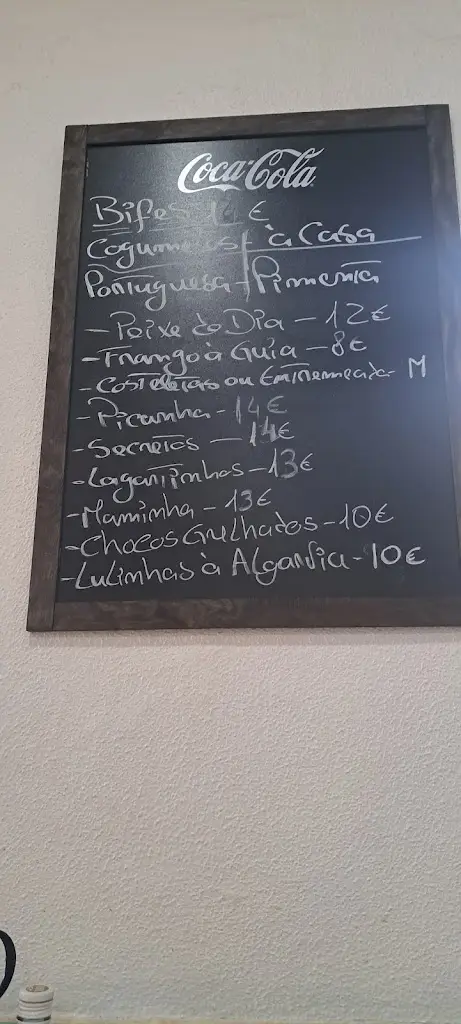 Coca-Cola
Bifes 14€
Cogumelos à Casa
Portuguesa Pimenta
- Peixe do Dia - 12€
- Frango à Guia - 8€
- Costeletas ou Entremeada - M
- Picanha - 14€
- Secretos - 14€
- Lagartinhos - 13€
- Maminha - 13€
- Chocos Grelhados - 10€
- Lulinhas à Algarvia - 10€